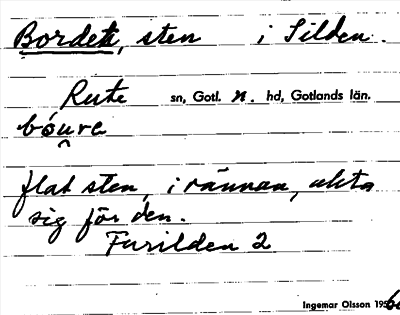 Bordet, sten i Silden.
Rute sn, Gotl. n. hd, Gotlands län.
flat sten, i rännan, akta
sig för den.
Furilden 2
Ingemar Olsson 195